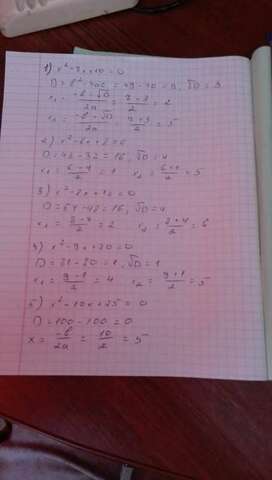 1) x² - 7x + 10 = 0
D = b² - 4ac = 49 - 40 = 9, √D = 3
x₁ = (-b - √D)/2a = (7 - 3)/2 = 2
x₂ = (-b - √D)/2a (7 + 3)/2 = 5
2) x² - 6x +
D = 32 = 16, √D = 4
x₁ = x₂ = = 5
3) x² - 8x + 12 = 0
D = 64 - 48 = 16, √D = 4
x₁ = (8 - 4)/2 = 2 x₂ = (8 + 4)/2 = 6
4) x² - 9x + 20 = 0
D = 81 - 80 = 1, √D = 1
x₁ = (9 - 1)/2 = 4 x₂ = (9 + 1)/2 = 5
5) x² - 10x + 25 = 0
D = 100 - 100 = 0
x = -b/2a = 10/2 = 5